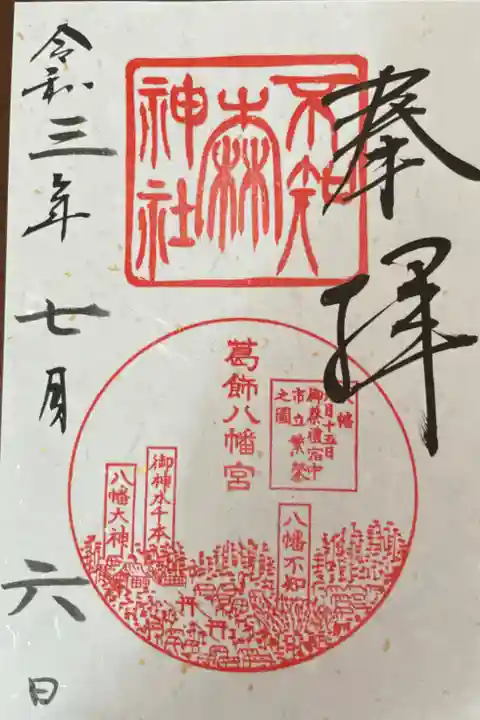 奉拝
不知
森
神社
葛飾八幡宮
八幡
月十五日
御祭禮宿中
市立繁栄
之圖
御神木千本
八幡大神
八幡不知
令和三年七月六日